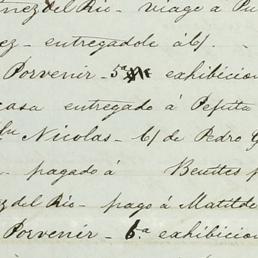 nez del Rio - viage a Pu
ez - entregadole á b/.
Porvenir - 5ª exhibicion
casa entregado á Pepitta
Nicolas - b/ de Pedro G
- pagado á Benites p
z del Rio - pago á Matilde
Porvenir - 6.ª exhibicion